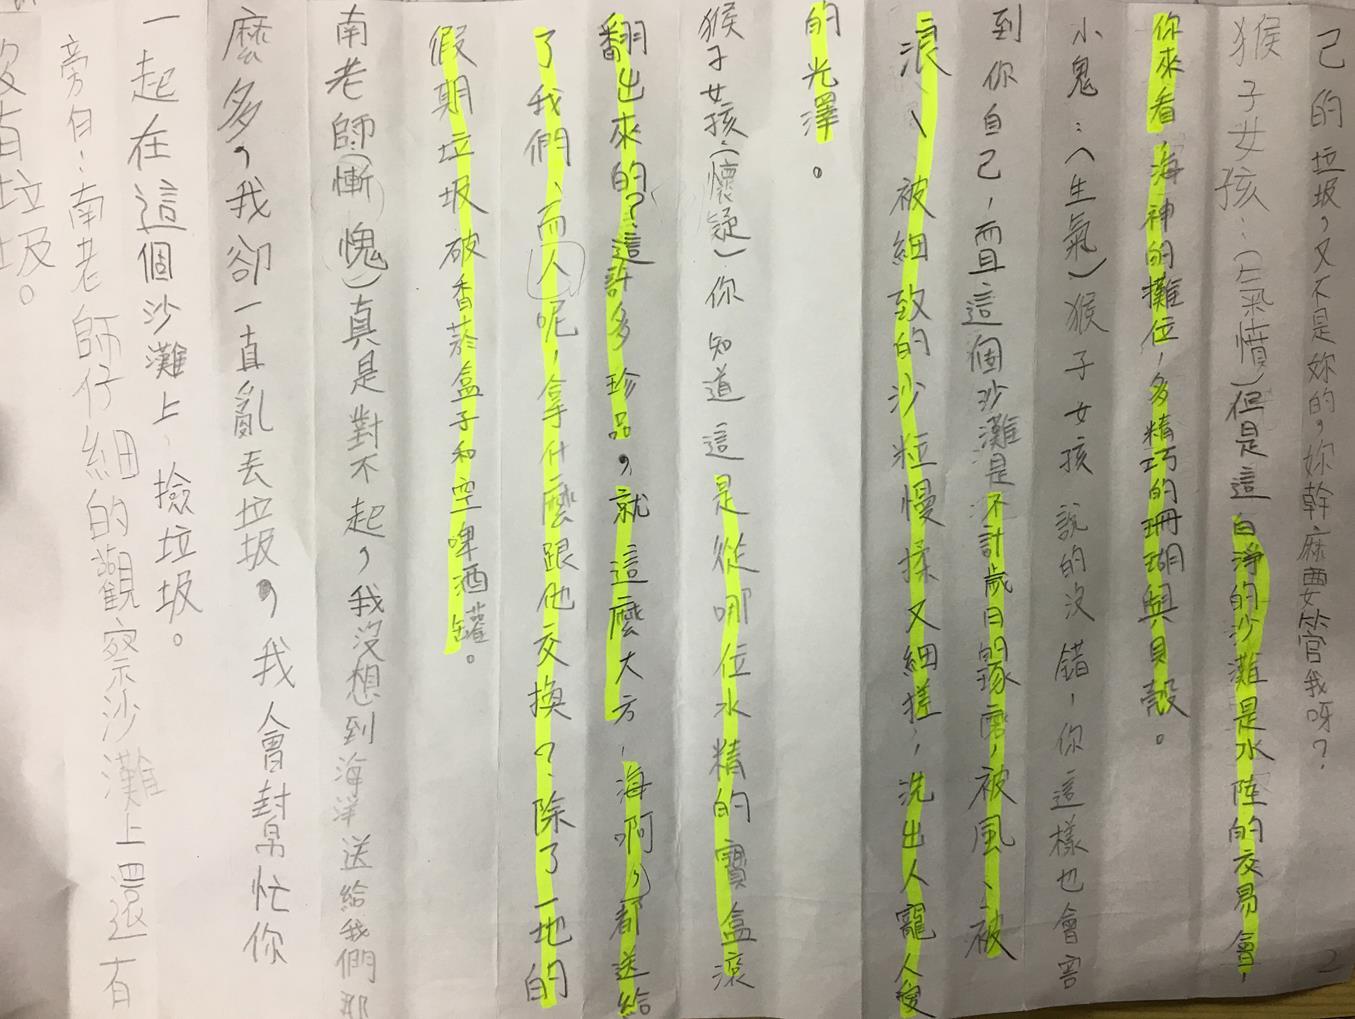 己的垃圾，又不是妳的，妳幹麻要管我呀？
猴子女孩：（气氣憤）但是這白淨的沙灘是水陸的交易會，
你來看，海神的攤位，多精巧的珊瑚與貝殼。
小鬼：（生氣）猴子女孩說的沒錯，你這樣也會害
到你自己，而且這個沙灘是不計歲月的琢磨，被風、被
浪、被細致的沙粒慢揉又細搓，洗出人寵人愛
的光澤。
猴子女孩（懷疑）你知道這是從哪位水精的寶盒滾
翻出來的？這許多珍品，就這麼大方，海啊，都送給
了我們，而人呢，拿什麼跟他交換？除了一地的
假期垃圾破香菸盒子和空啤酒罐。
南老師（慚愧）真是對不起，我沒想到海洋送給我們那
麼多，我卻一直亂丟垃圾，我會幫忙你
一起在這個沙灘上，撿垃圾。
旁白：南老師仔細的觀察沙灘上還有
沒有垃圾。
2